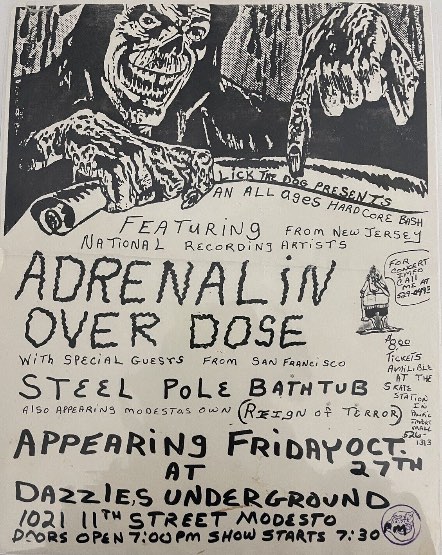 LICK THE DOG PRESENTS
AN ALL ages HARDCORE BASH
FEATURING FROM NEW JERSEY
NATIONAL RECORDING ARTISTS
ADRENALIN
OVER DOSE
WITH SPECIAL GUESTS FROM SAN FRANCISCO
STEEL POLE BATHTUB
ALSO APPEARING MODESTAS OWN (REIGN of TERROR)
APPEARING FRIDAY OCT.
27TH
AT
DAZZLES UNDERGROUND
1021 11TH STREET MODESTO
DOORS OPEN 7:00 PM SHOW STARTS 7:30 PM
FOR
CONCERT
INFO
CALL
ME AT
TICKETS
AVAILIBLE
AT THE
SKATE
STATION
IN